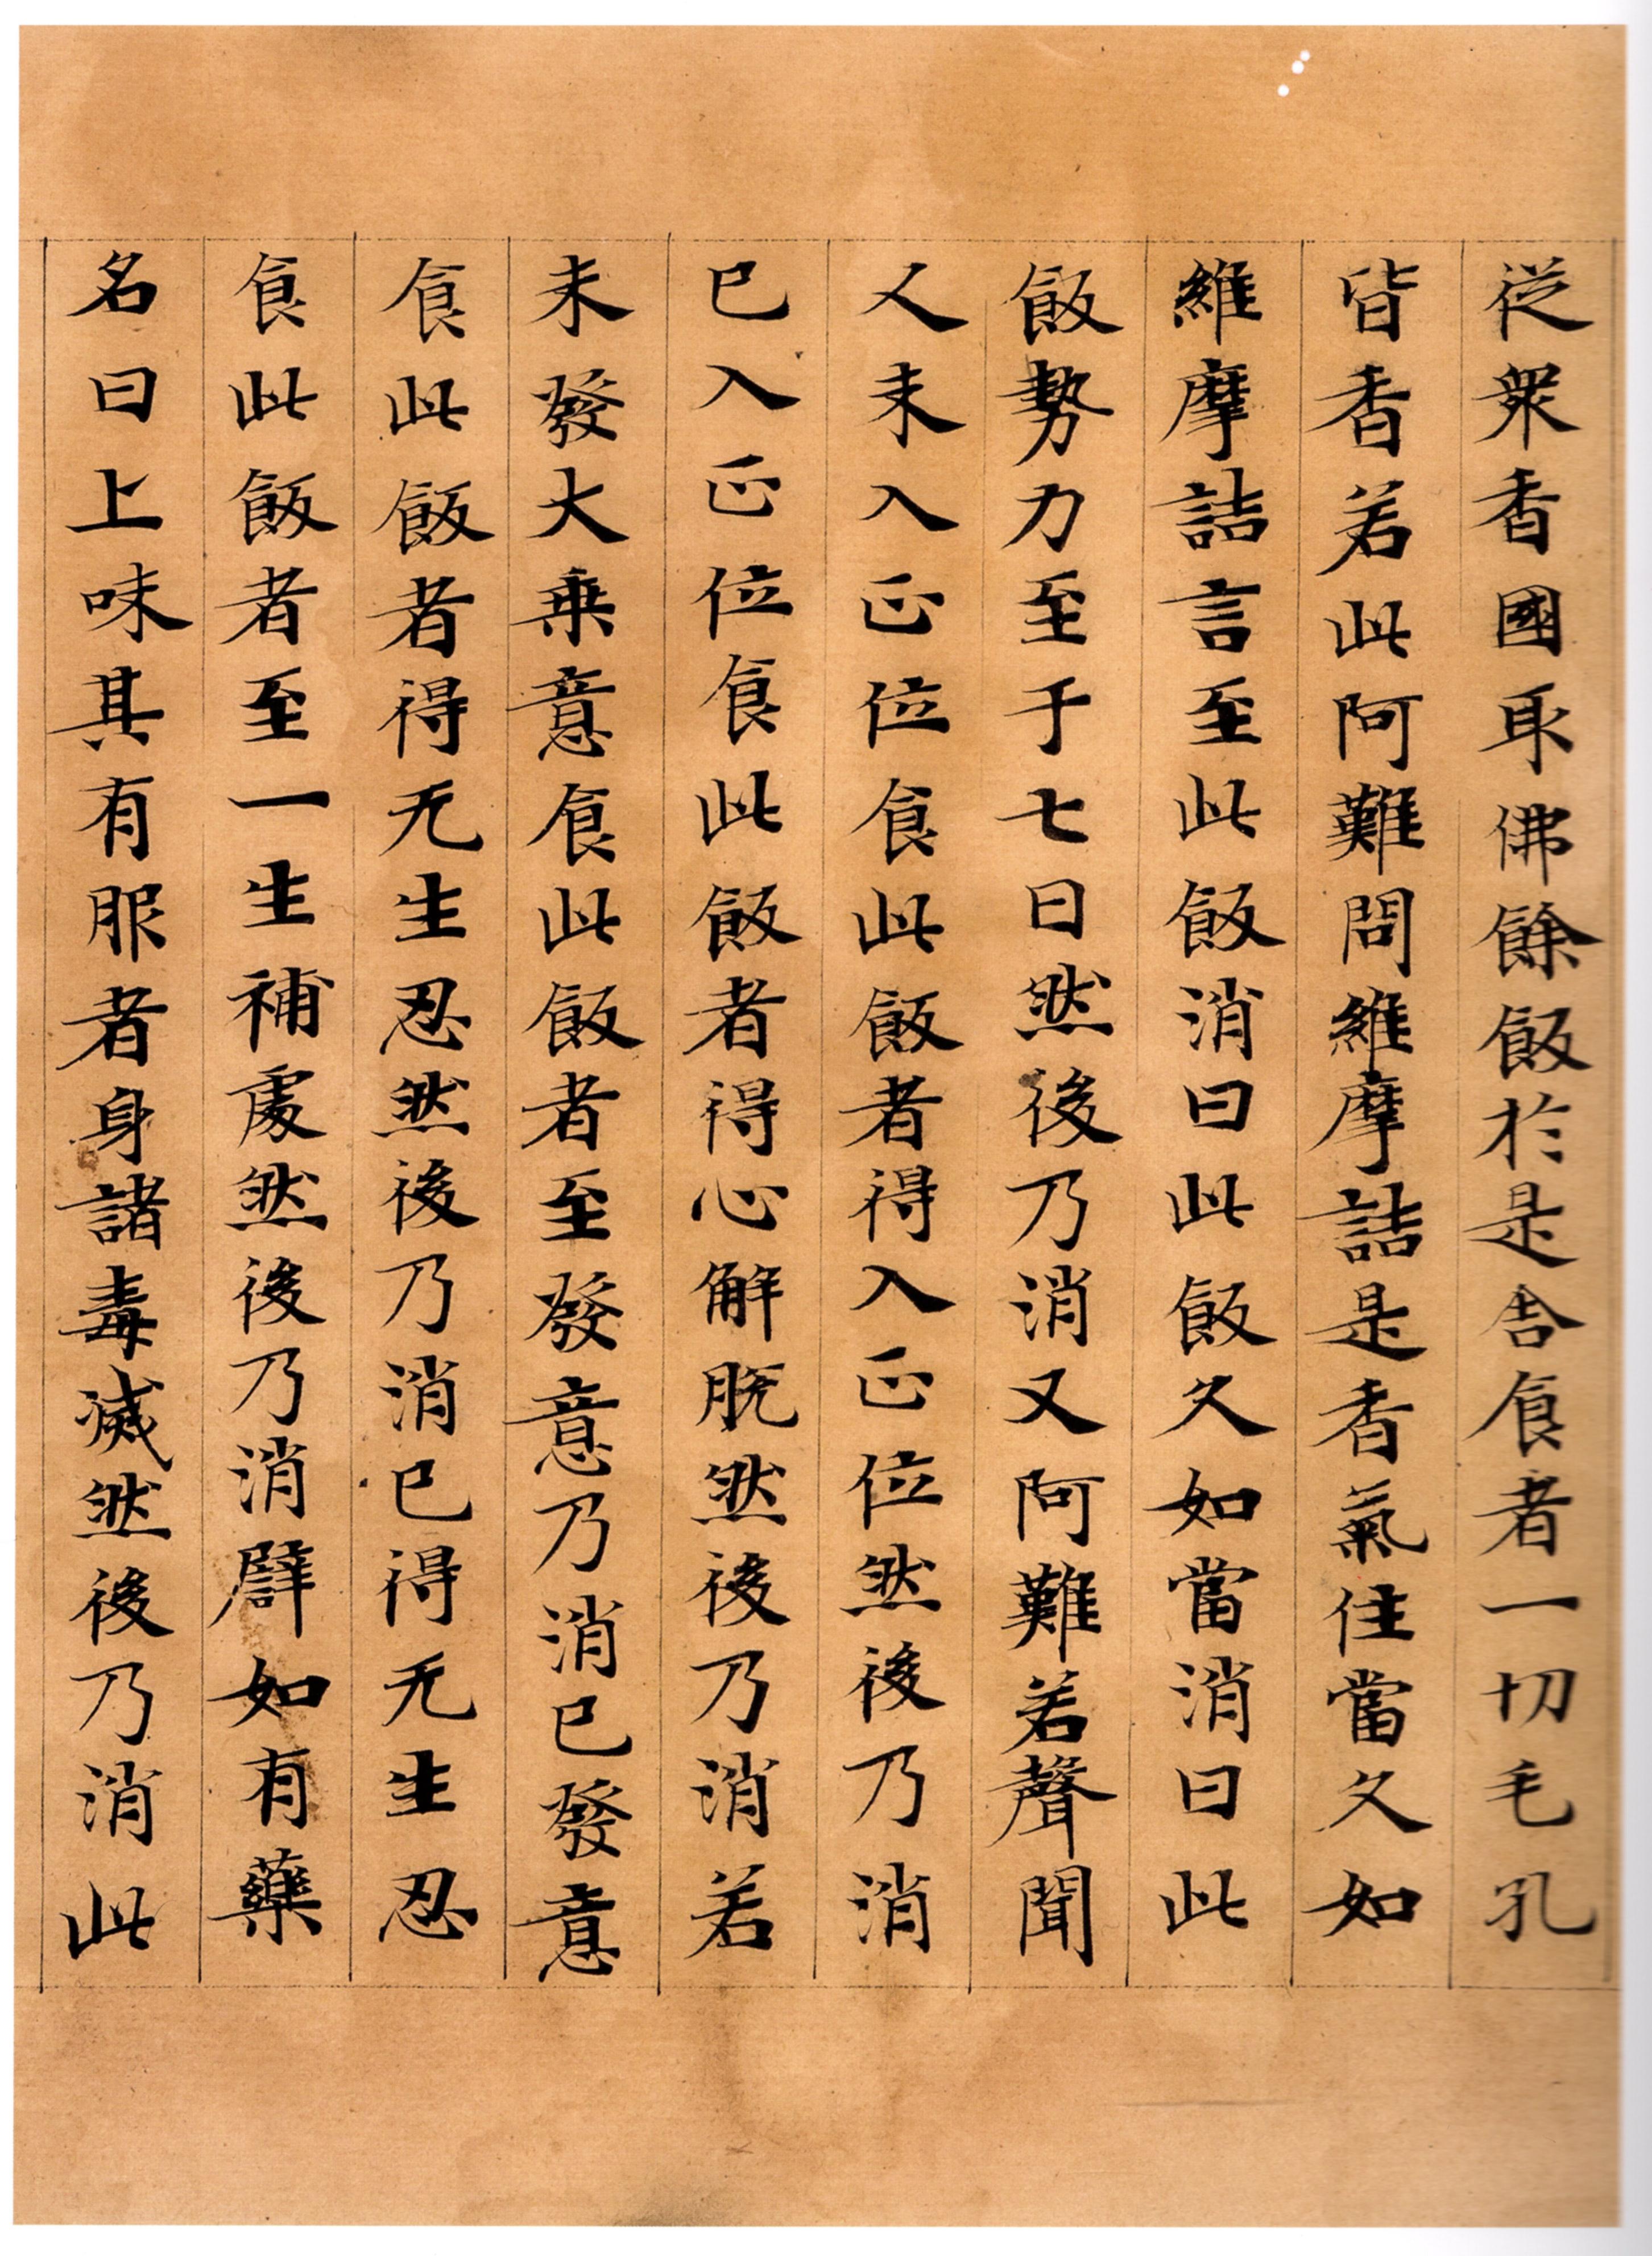 從衆香國取佛餘飯於是舎食者一切毛孔
皆香若此阿難問維摩詰是香氣住當久如
維摩詰言至此飯消曰此飯久如當消曰此
飯勢力至于七日然後乃消又阿難若聲聞
人未入正位食此飯者得入正位然後乃消
已入正位食此飯者得心解脫然後乃消若
未發大乗意食此飯者至發意乃消已發意
食此飯者得无生忍然後乃消已得无生忍
食此飯者至一生補處然後乃消譬如有藥
名曰上味其有服者身諸毒滅然後乃消此